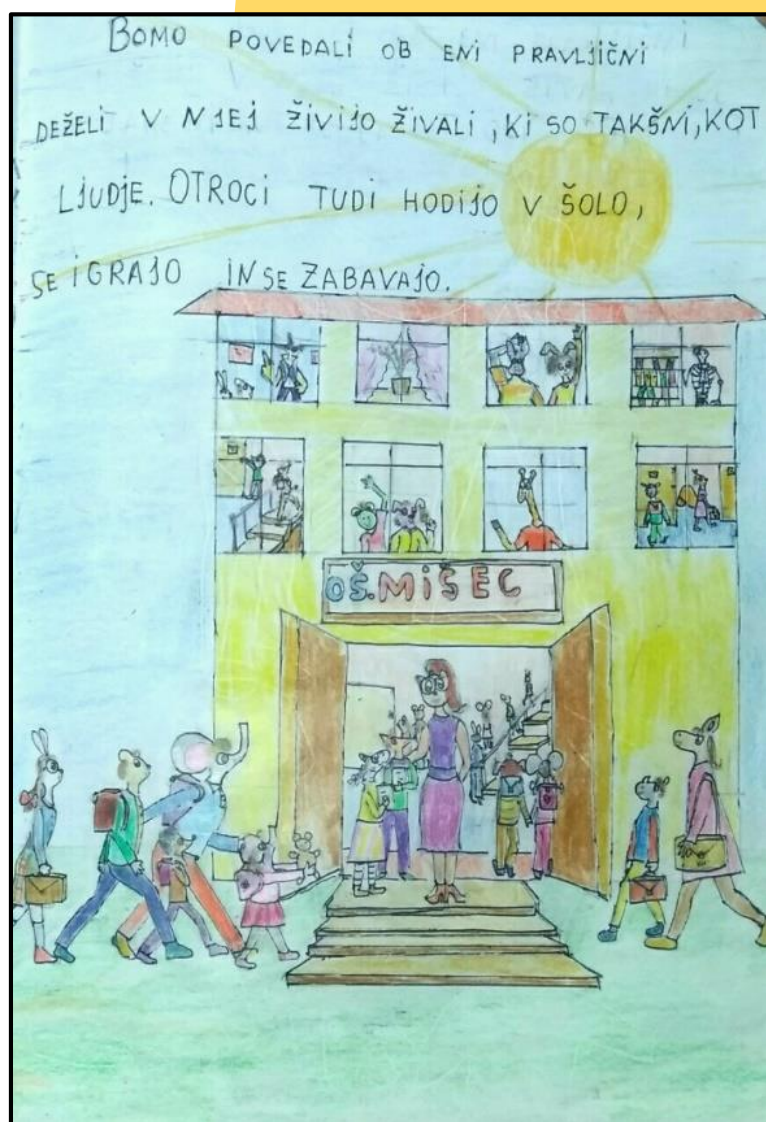 BOMO POVEDALI OB ENI PRAVLJIČNI
DEŽELI V NJEJ ŽIVIJO ŽIVALI, KI SO TAKŠNI, KOT
LJUDJE. OTROCI TUDI HODIJO V ŠOLO,
SE IGRAJO IN SE ZABAVAJO.
OŠ.MIŠEC